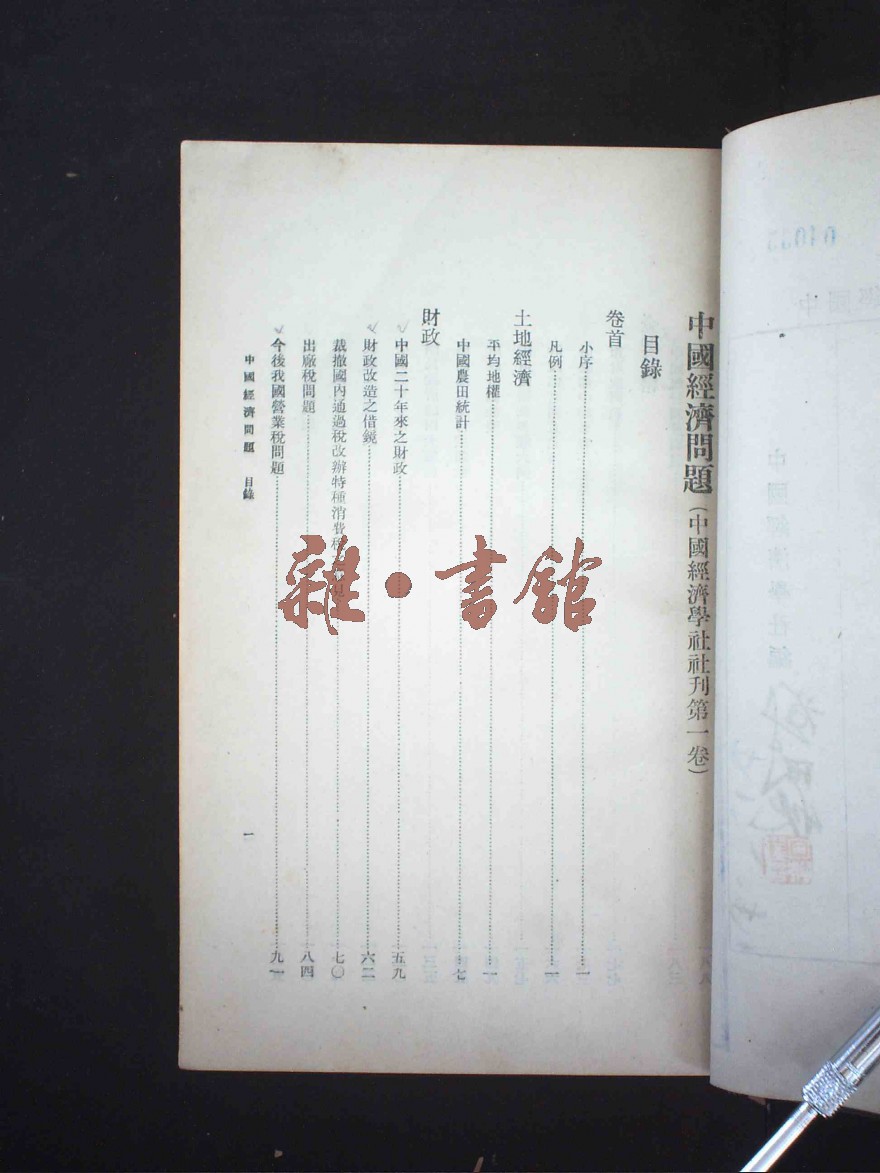 中國經濟問題（中國經濟學社社刊第一卷）
目錄
卷首
小序……一
凡例……一
土地經濟
平均地權……一
中國農田統計……七
財政
中國二十年來之財政……五九
財政改造之借鏡……六二
裁撤國內通過稅改辦特種消費稅……七〇
出廠稅問題……八四
今後我國營業稅問題……九一
中國經濟問題 目錄
一
雜·書館